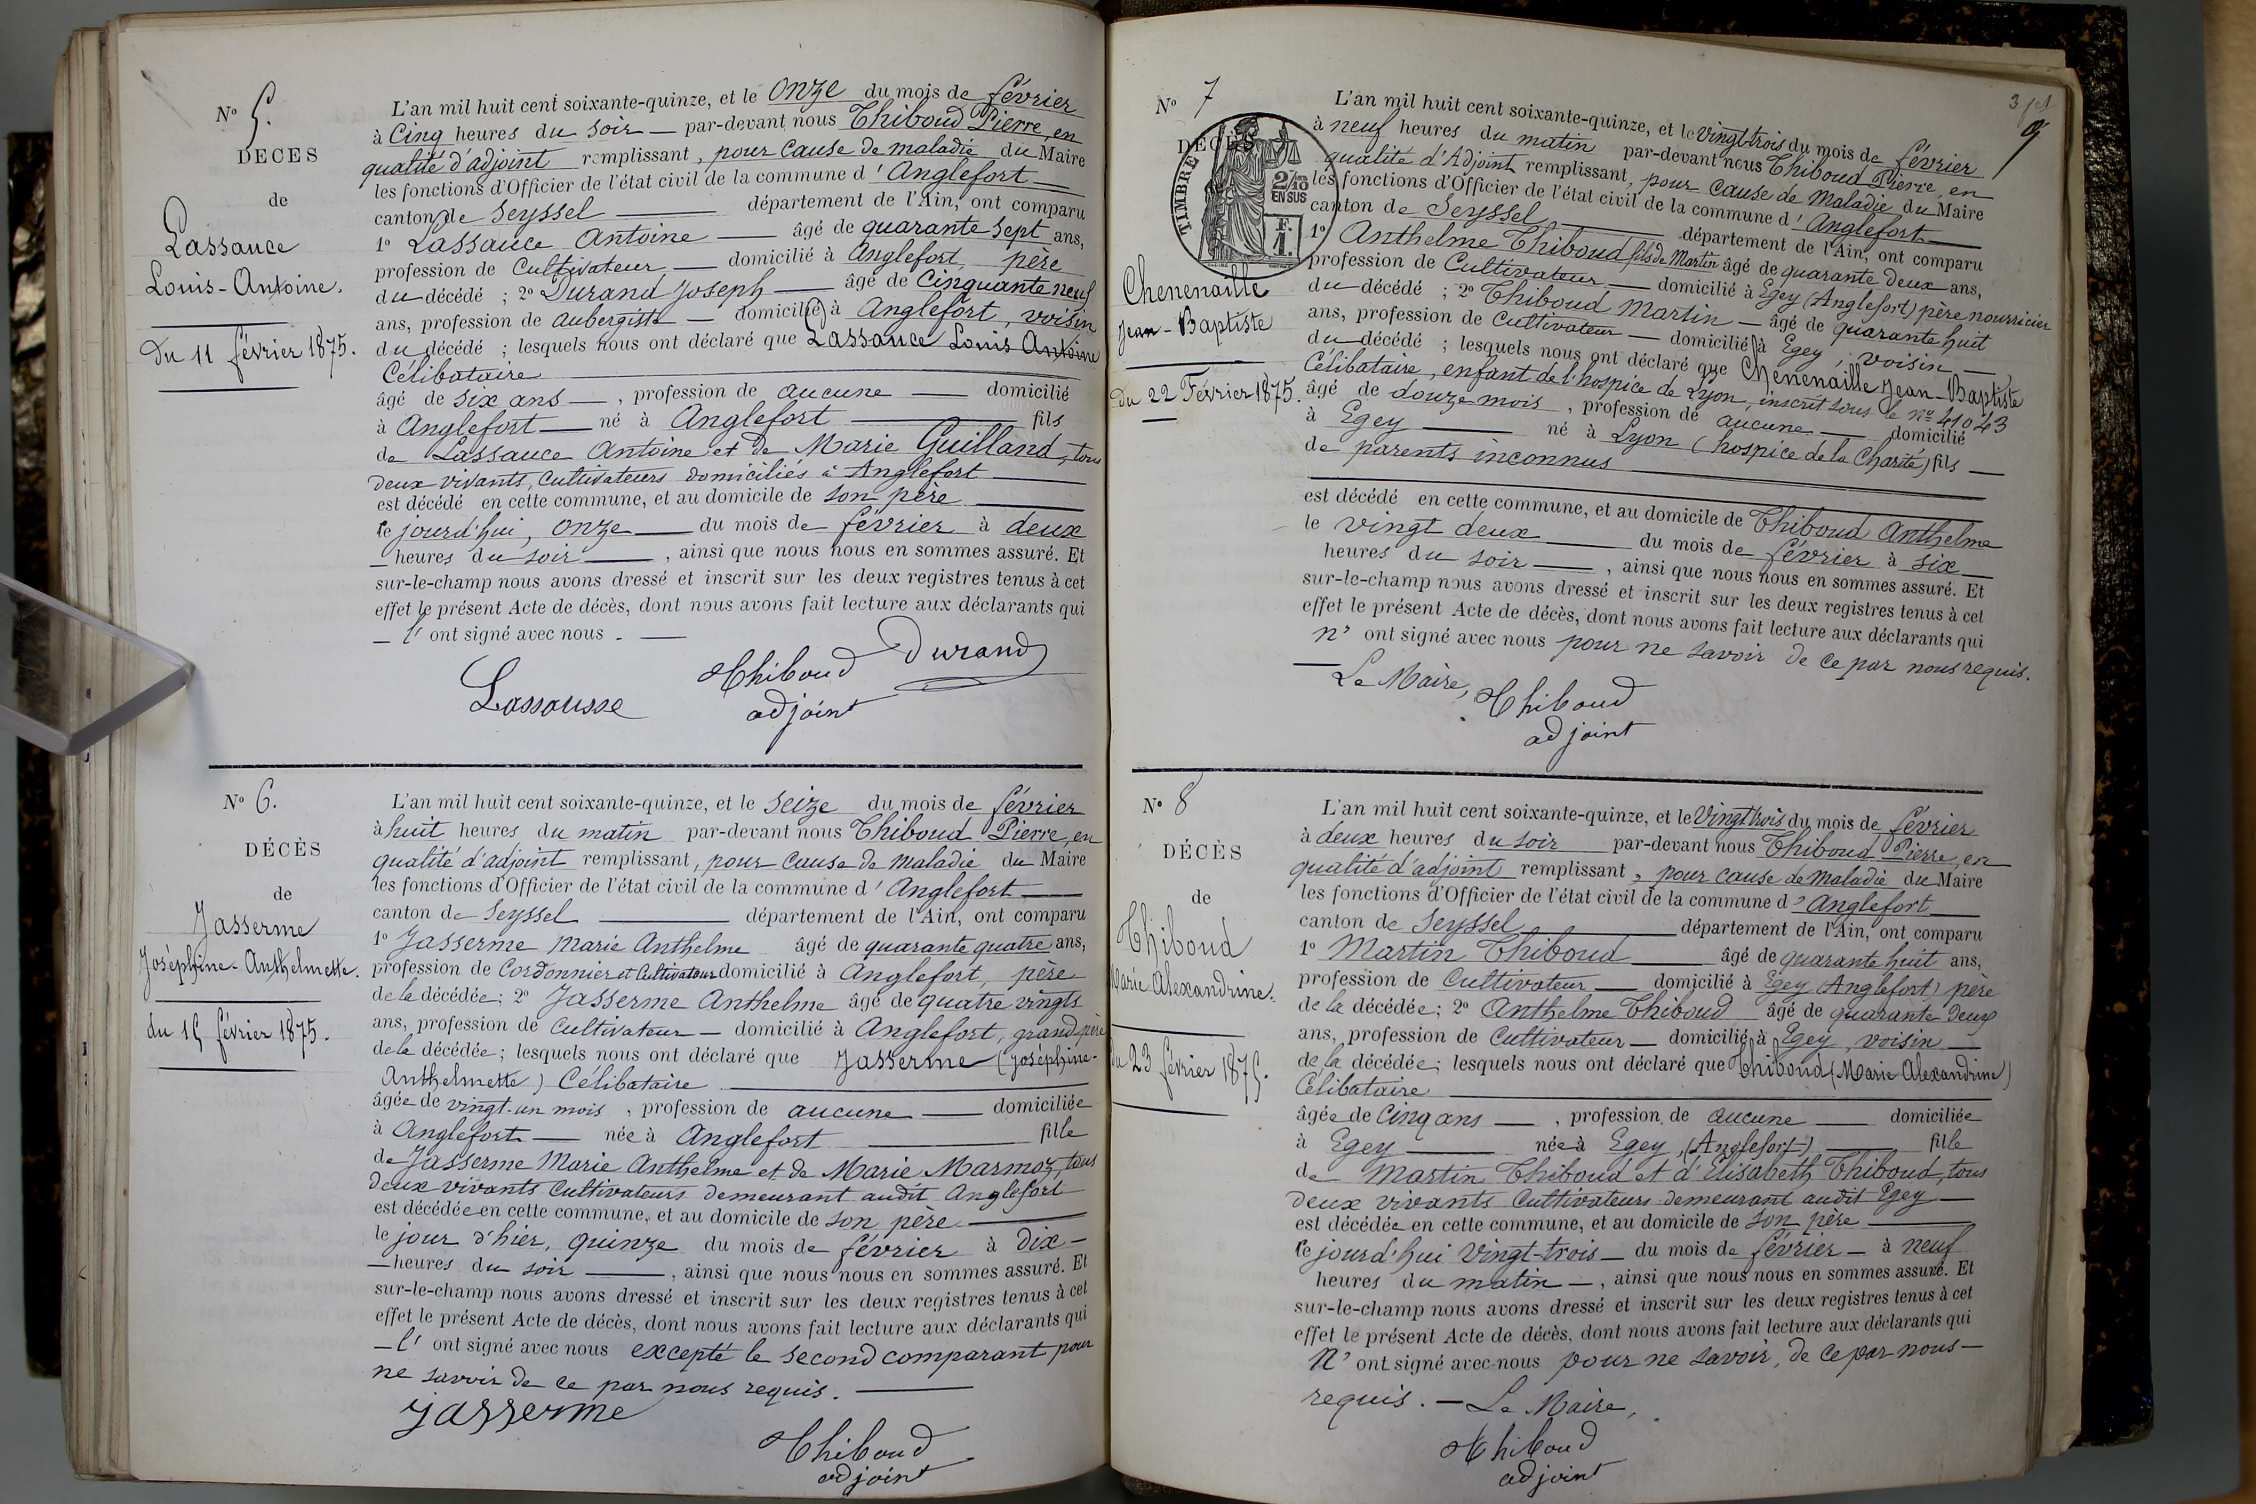 No 5.
DÉCÈS
de
Lassauce
Louis-Antoine.
Du 11 février 1875.
L'an mil huit cent soixante-quinze, et le onze du mois de février
à Cinq heures du soir — par-devant nous Thiboud Pierre, en
qualité d'adjoint remplissant, pour cause de maladie du Maire
les fonctions d'Officier de l'état civil de la commune d'Anglefort —
canton de Seyssel — département de l'Ain, ont comparu
1o Lassauce Antoine — âgé de quarante sept ans,
profession de Cultivateur, — domicilié à Anglefort, père
du décédé ; 2o Durand Joseph — âgé de Cinquante neuf
ans, profession de aubergiste — domicilié à Anglefort, voisin
du décédé ; lesquels nous ont déclaré que Lassauce Louis Antoine
Célibataire —
âgé de six ans —, profession de aucune — domicilié
à Anglefort — né à Anglefort — fils
de Lassauce Antoine et de Marie Guilland, tous
deux vivants, cultivateurs domiciliés à Anglefort —
est décédé en cette commune, et au domicile de son père —
ce jourd'hui, onze — du mois de février à deux
— heures du soir —, ainsi que nous nous en sommes assuré. Et
sur-le-champ nous avons dressé et inscrit sur les deux registres tenus à cet
effet le présent Acte de décès, dont nous avons fait lecture aux déclarants qui
— l' ont signé avec nous. —
Lassausse Thiboud Durand
adjoint
No 6.
DÉCÈS
de
Jasserme
Joséphine-Anthelmette.
du 15 février 1875.
L'an mil huit cent soixante-quinze, et le seize du mois de février
à huit heures du matin par-devant nous Thiboud Pierre, en
qualité d'adjoint remplissant, pour cause de maladie du Maire
les fonctions d'Officier de l'état civil de la commune d'Anglefort —
canton de Seyssel — département de l'Ain, ont comparu
1o Jasserme Marie Anthelme âgé de quarante quatre ans,
profession de Cordonnier et Cultivateur domicilié à Anglefort, père
de la décédée ; 2o Jasserme Anthelme âgé de quatre vingts
ans, profession de Cultivateur — domicilié à Anglefort, grand-père
de la décédée ; lesquels nous ont déclaré que Jasserme (Joséphine-
Anthelmette) Célibataire —
âgée de vingt-un mois, profession de aucune — domiciliée
à Anglefort — née à Anglefort — fille
de Jasserme Marie Anthelme et de Marie Marmoz, tous
deux vivants Cultivateurs demeurant audit Anglefort
est décédée en cette commune, et au domicile de son père —
le jour d'hier, quinze du mois de février à dix —
— heures du soir —, ainsi que nous nous en sommes assuré. Et
sur-le-champ nous avons dressé et inscrit sur les deux registres tenus à cet
effet le présent Acte de décès, dont nous avons fait lecture aux déclarants qui
— l' ont signé avec nous excepté le second comparant pour
ne savoir de ce par nous requis. —
Jasserme
Thiboud
adjoint
No 7
DÉCÈS
TIMBRE
2/10
EN SUS
F.
1.
Chenenaille
Jean-Baptiste
Du 22 Février 1875.
L'an mil huit cent soixante-quinze, et le vingt-trois du mois de février
à neuf heures du matin par-devant nous Thiboud Pierre, en
qualité d'Adjoint remplissant, pour cause de Maladie du Maire
les fonctions d'Officier de l'état civil de la commune d'Anglefort —
canton de Seyssel — département de l'Ain, ont comparu
1o Anthelme Thiboud fils de Martin âgé de quarante deux ans,
profession de Cultivateur — domicilié à Egey (Anglefort) père nourricier
du décédé ; 2o Thiboud Martin — âgé de quarante huit
ans, profession de Cultivateur — domicilié à Egey, voisin —
du décédé ; lesquels nous ont déclaré que Chenenaille Jean-Baptiste
Célibataire, enfant de l'hospice de Lyon, inscrit sous le no 41043
âgé de douze mois, profession de aucune — domicilié
à Egey — né à Lyon (hospice de la Charité) fils —
de parents inconnus —
est décédé en cette commune, et au domicile de Thiboud Anthelme
le vingt deux — du mois de février à six —
heures du soir —, ainsi que nous nous en sommes assuré. Et
sur-le-champ nous avons dressé et inscrit sur les deux registres tenus à cet
effet le présent Acte de décès, dont nous avons fait lecture aux déclarants qui
n' ont signé avec nous pour ne savoir de ce par nous requis.
— Le Maire, Thiboud
adjoint
No 8
DÉCÈS
de
Thiboud
Marie Alexandrine.
du 23 février 1875.
L'an mil huit cent soixante-quinze, et le Vingt trois du mois de février
à deux heures du soir par-devant nous Thiboud Pierre, en
qualité d'adjoint remplissant, pour cause de maladie du Maire
les fonctions d'Officier de l'état civil de la commune d'Anglefort —
canton de Seyssel — département de l'Ain, ont comparu
1o Martin Thiboud — âgé de quarante huit ans,
profession de Cultivateur — domicilié à Egey (Anglefort) père
de la décédée ; 2o Anthelme Thiboud âgé de quarante deux
ans, profession de Cultivateur — domicilié à Egey, voisin —
de la décédée ; lesquels nous ont déclaré que Thiboud (Marie Alexandrine)
Célibataire —
âgée de Cinq ans —, profession de aucune — domiciliée
à Egey — née à Egey, (Anglefort) — fille
de Martin Thiboud et d'Elisabeth Thiboud, tous
deux vivants Cultivateurs demeurant audit Egey —
est décédée en cette commune, et au domicile de son père —
ce jourd'hui Vingt-trois — du mois de février — à neuf
heures du matin —, ainsi que nous nous en sommes assuré. Et
sur-le-champ nous avons dressé et inscrit sur les deux registres tenus à cet
effet le présent Acte de décès, dont nous avons fait lecture aux déclarants qui
N' ont signé avec nous pour ne savoir, de ce par nous —
requis. — Le Maire,
Thiboud
adjoint